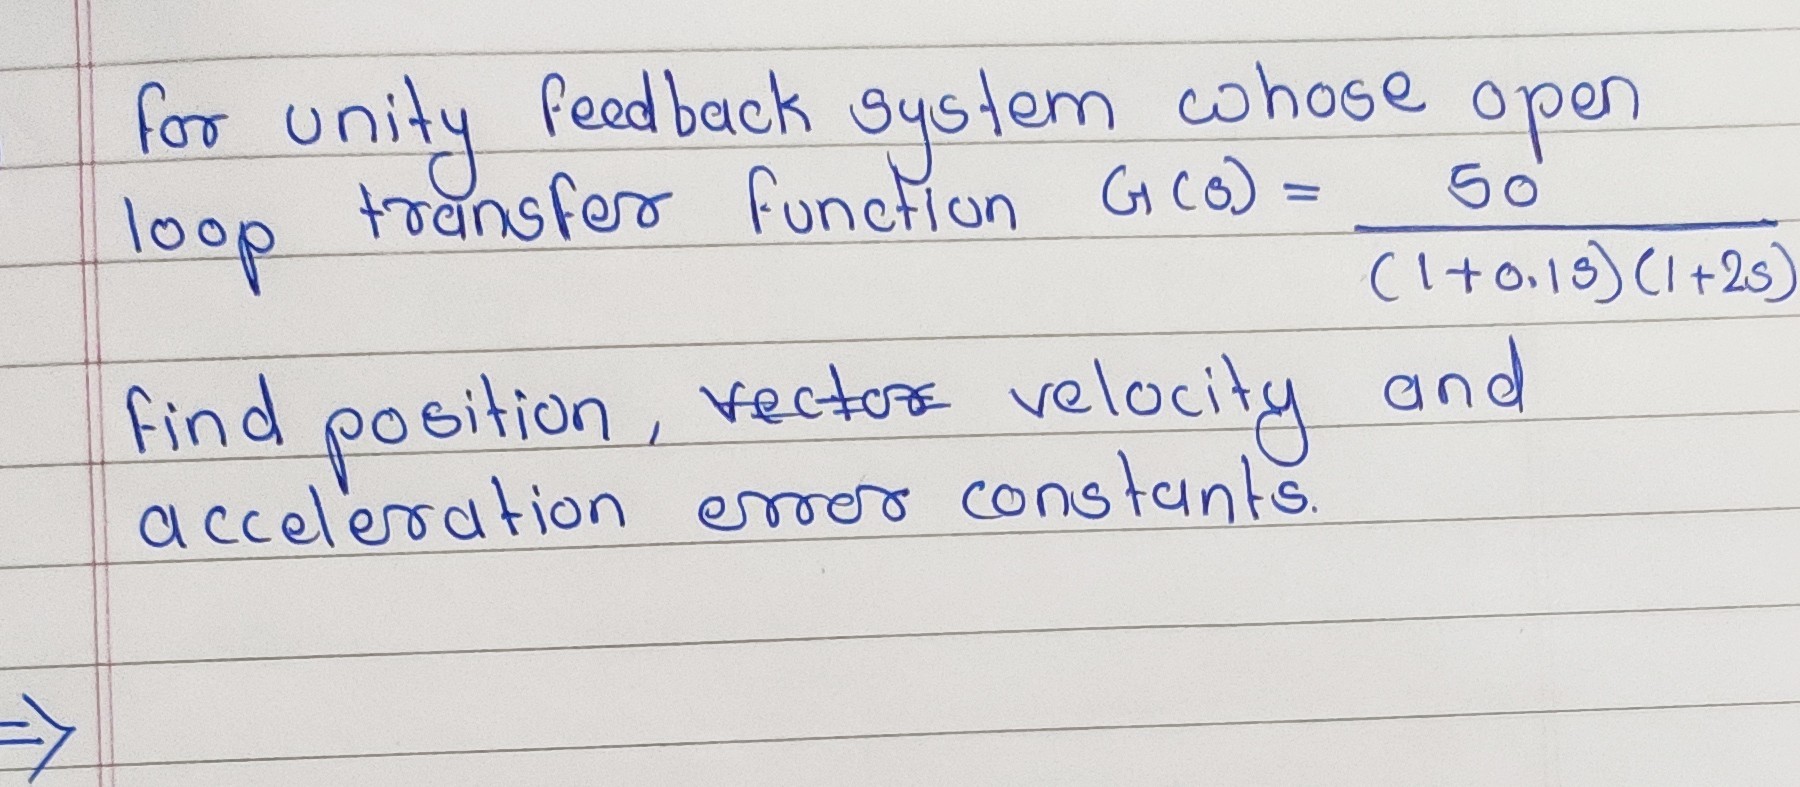 for unity feedback system whose open
loop transfer function G(s) = 50 / (1+0.1s)(1+2s)
find position, vector velocity and
acceleration error constants.
⇒